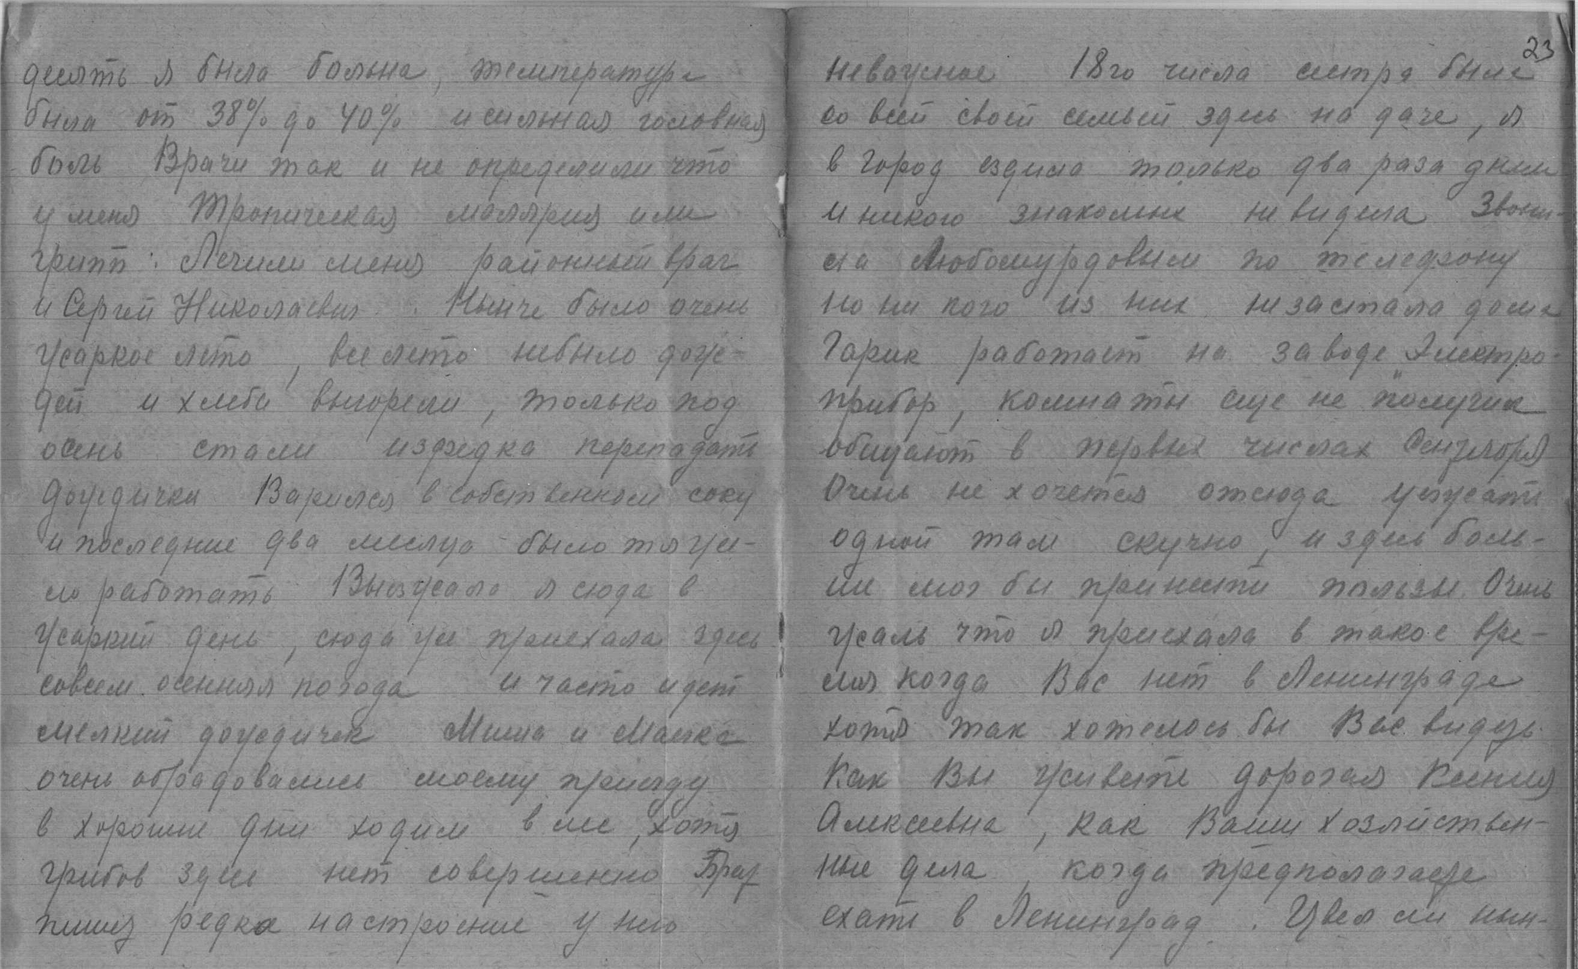 десять я была больна, температура
была от 38% до 40% и сильная головная
боль Врачи так и не определили что
у меня Тропическая малярия или
грипп. Лечили меня районный врач
и Сергей Николаевич. Нынче было очень
жаркое лето, все лето небыло дож-
дей и хлеба выгорели, только под
осень стали изредка перепадать
дождички Варился в собственном соку
и последние два месяца было тяже-
ло работать Выезжала я сюда в
жаркий день, сюда же приехала здесь
совсем осенняя погода и часто идет
мелкий дождичек Миша и Майка
очень обрадовались моему приезду
в хорошие дни ходим в лес, хотя
грибов здесь нет совершенно Брат
пишет редко настроение у него
23
неважное 18го числа сестра была
со всей своей семьей здесь на даче, я
в город ездила только два раза днем
и никого знакомых не видела Звони-
ла Любомудровым по телефону
но ни кого из них не застала дома
Гарик работает на заводе "Электро-
прибор", комнаты еще не получил
обещают в первых числах Сентября
Очень не хочется отсюда уезжать
одной там скучно, и здесь боль-
ше мог бы принести пользы Очень
жаль что я приехала в такое вре-
мя когда Вас нет в Ленинграде
хотя так хотелось бы Вас видеть
Как Вы живете дорогая Ксения
Алексеевна, как Ваши хозяйствен-
ные дела когда предполагаете
ехать в Ленинград. Цвел ли нын-